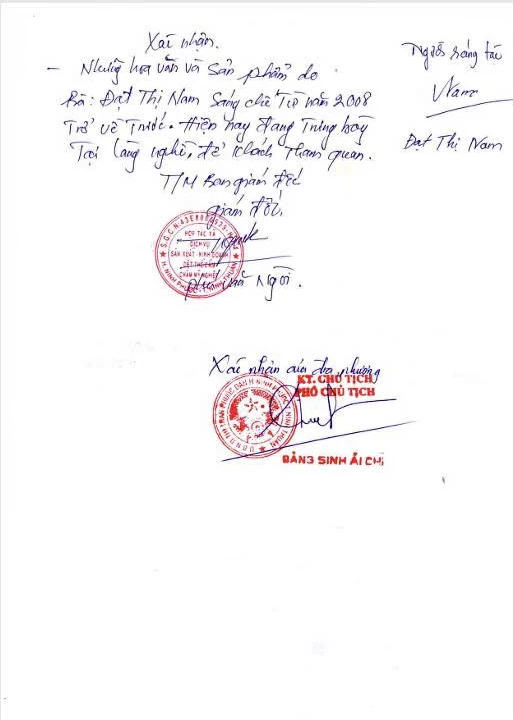 Xác nhận.
- Những hoa văn và sản phẩm do
Bà: Đạt Thị Nam Sáng chế Từ năm 2008
Trở về trước. Hiện nay đang Trưng bày
Tại làng nghề, để khách Tham quan.
T/M Ban giám đốc
giám đốc
HỢP TÁC XÃ
DỊCH VỤ
SẢN XUẤT KINH DOANH
DỆT THỔ CẨM
CHĂM MỸ NGHIỆP
H. NINH PHƯỚC - T. NINH THUẬN
Người sáng tác
Nam
Đạt Thị Nam
Xác nhận của địa phương
KT. CHỦ TỊCH
PHÓ CHỦ TỊCH
ĐÀNG SINH ÁI CHI